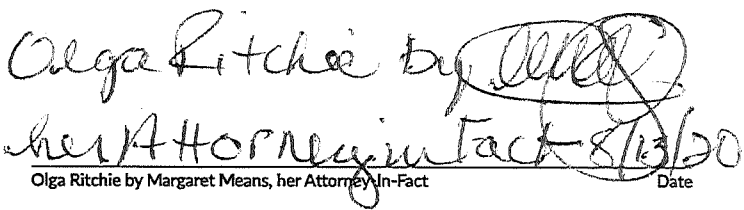 Olga Ritchie by
her Attorney in Fact 8/13/20
Olga Ritchie by Margaret Means, her Attorney-In-Fact Date